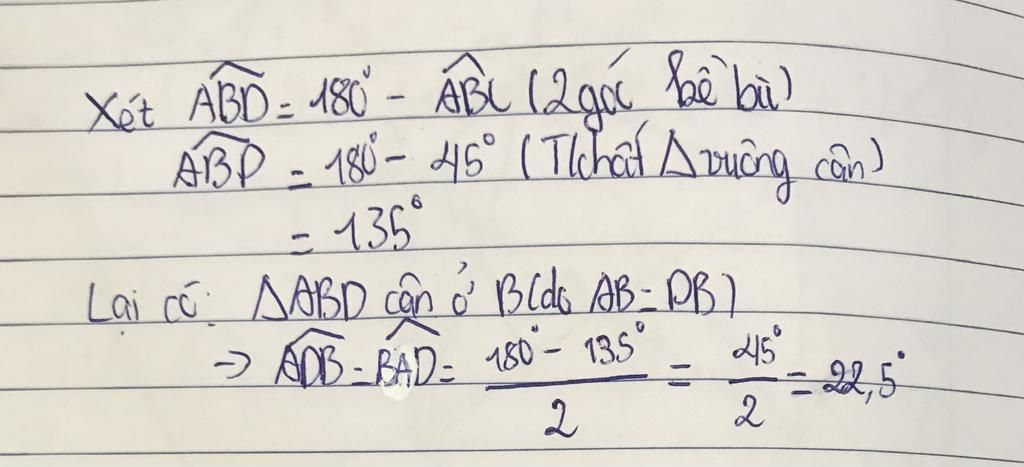 Xét ABD = 180° - ABC (2 góc kề bù)
ABD = 180° - 45° (T/chất Δ vuông cân)
= 135°
Lại có: ΔABD cân ở B (do AB = DB)
→ ADB = BAD = (180° - 135°)/2 = 45°/2 = 22,5°